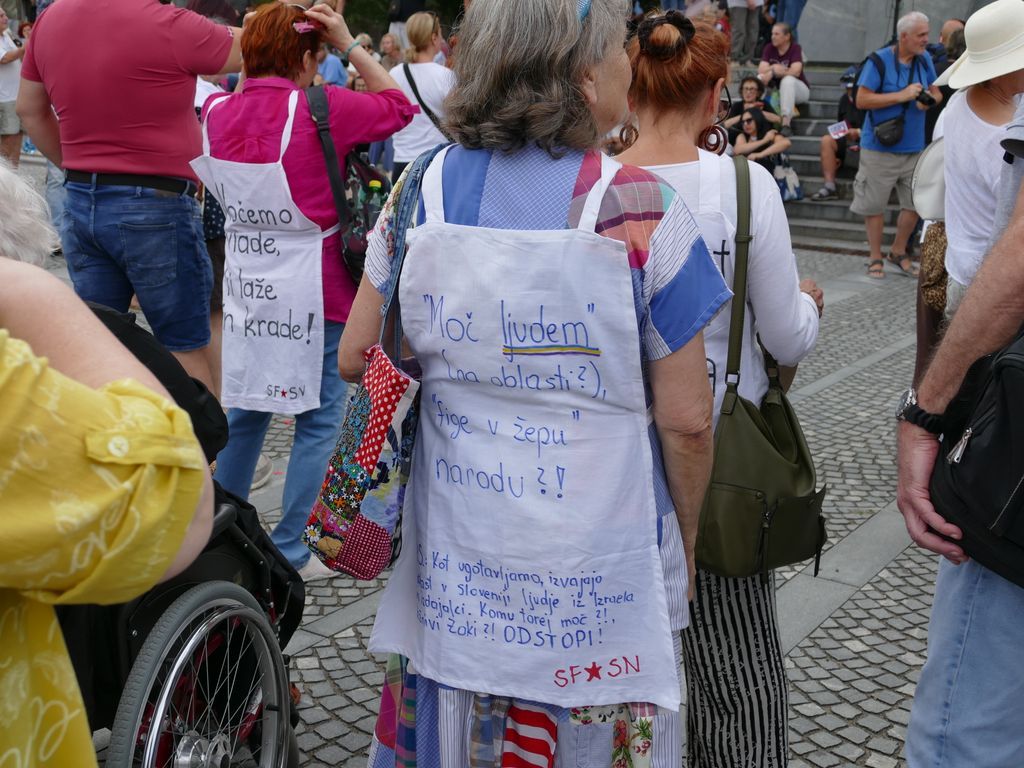 očemo
lade,
laže
n krade!
SF★SN
"Moč ljudem"
(na oblasti?),
"fige v žepu"
narodu?!
Kot ugotavljamo, izvajajo
v sloveniji ljudje iz Izraela
Komu torej moč?!,
žoki?! ODSTOPI!
SF★SN